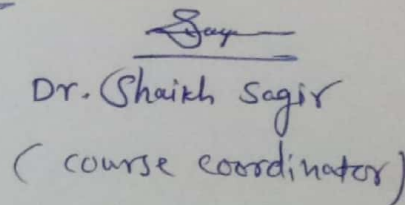 Dr. Shaikh Sagir
( course coordinator)